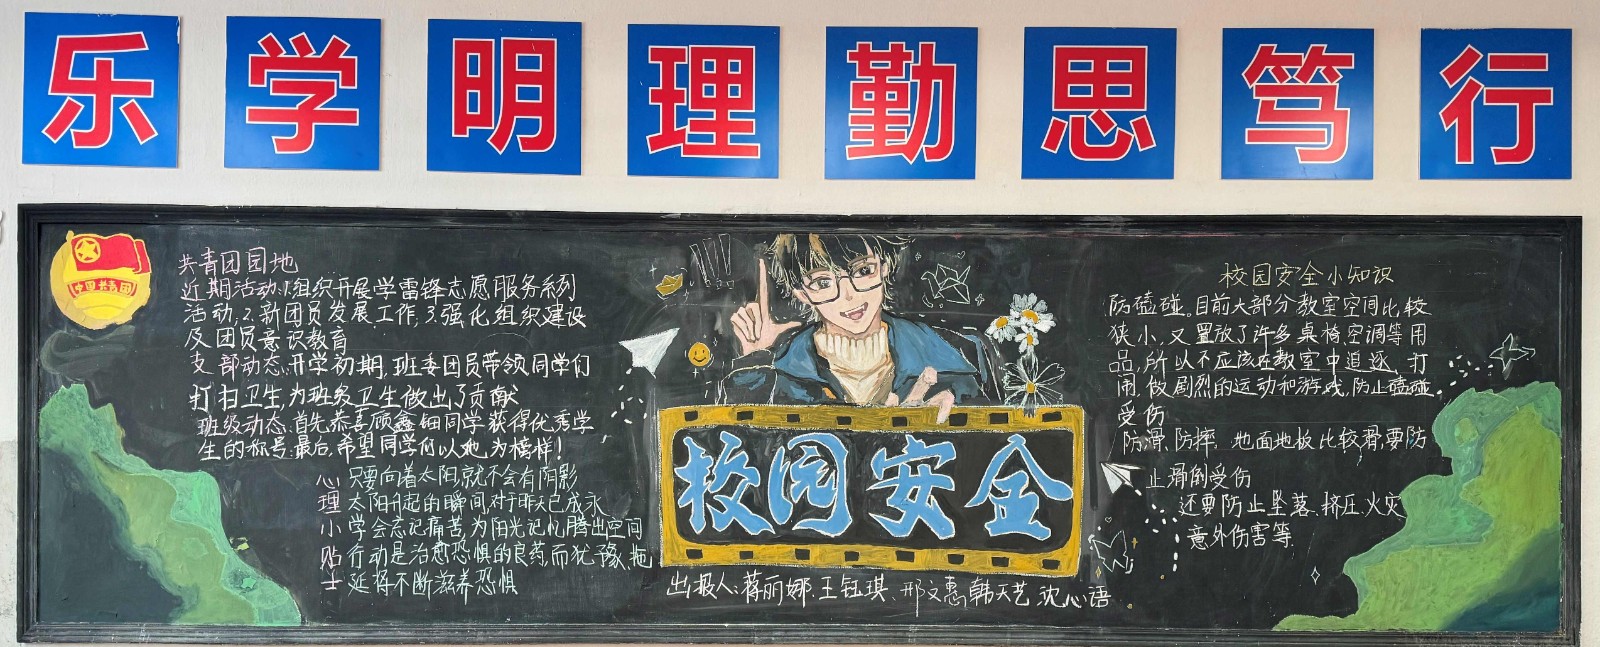 乐学明理勤思笃行
中国共青团
共青团园地
近期活动:1.组织开展学雷锋志愿服务系列
活动,2.新团员发展工作,3.强化组织建设
及团员意识教育
支部动态:开学初期,班委团员带领同学们
打扫卫生,为班级卫生做出了贡献
班级动态:首先恭喜顾鑫钿同学获得优秀学
生的称号.最后,希望同学们以她为榜样!
心理小贴士
只要向着太阳,就不会有阴影
太阳升起的瞬间,对于昨天已成永
学会忘记痛苦,为阳光记忆腾出空间
行动是治愈恐惧的良药,而犹豫、拖
延将不断滋养恐惧
校园安全
出报人:蒋丽娜.王钰琪.邢文惠.韩天艺.沈心语
校园安全小知识
防磕碰。目前大部分教室空间比较
狭小,又置放了许多桌椅,空调等用
品,所以不应该在教室中追逐、打
闹,做剧烈的运动和游戏,防止磕碰
受伤
防滑、防摔。地面地板比较滑,要防
止滑倒受伤
还要防止坠落、挤压、火灾
意外伤害等.